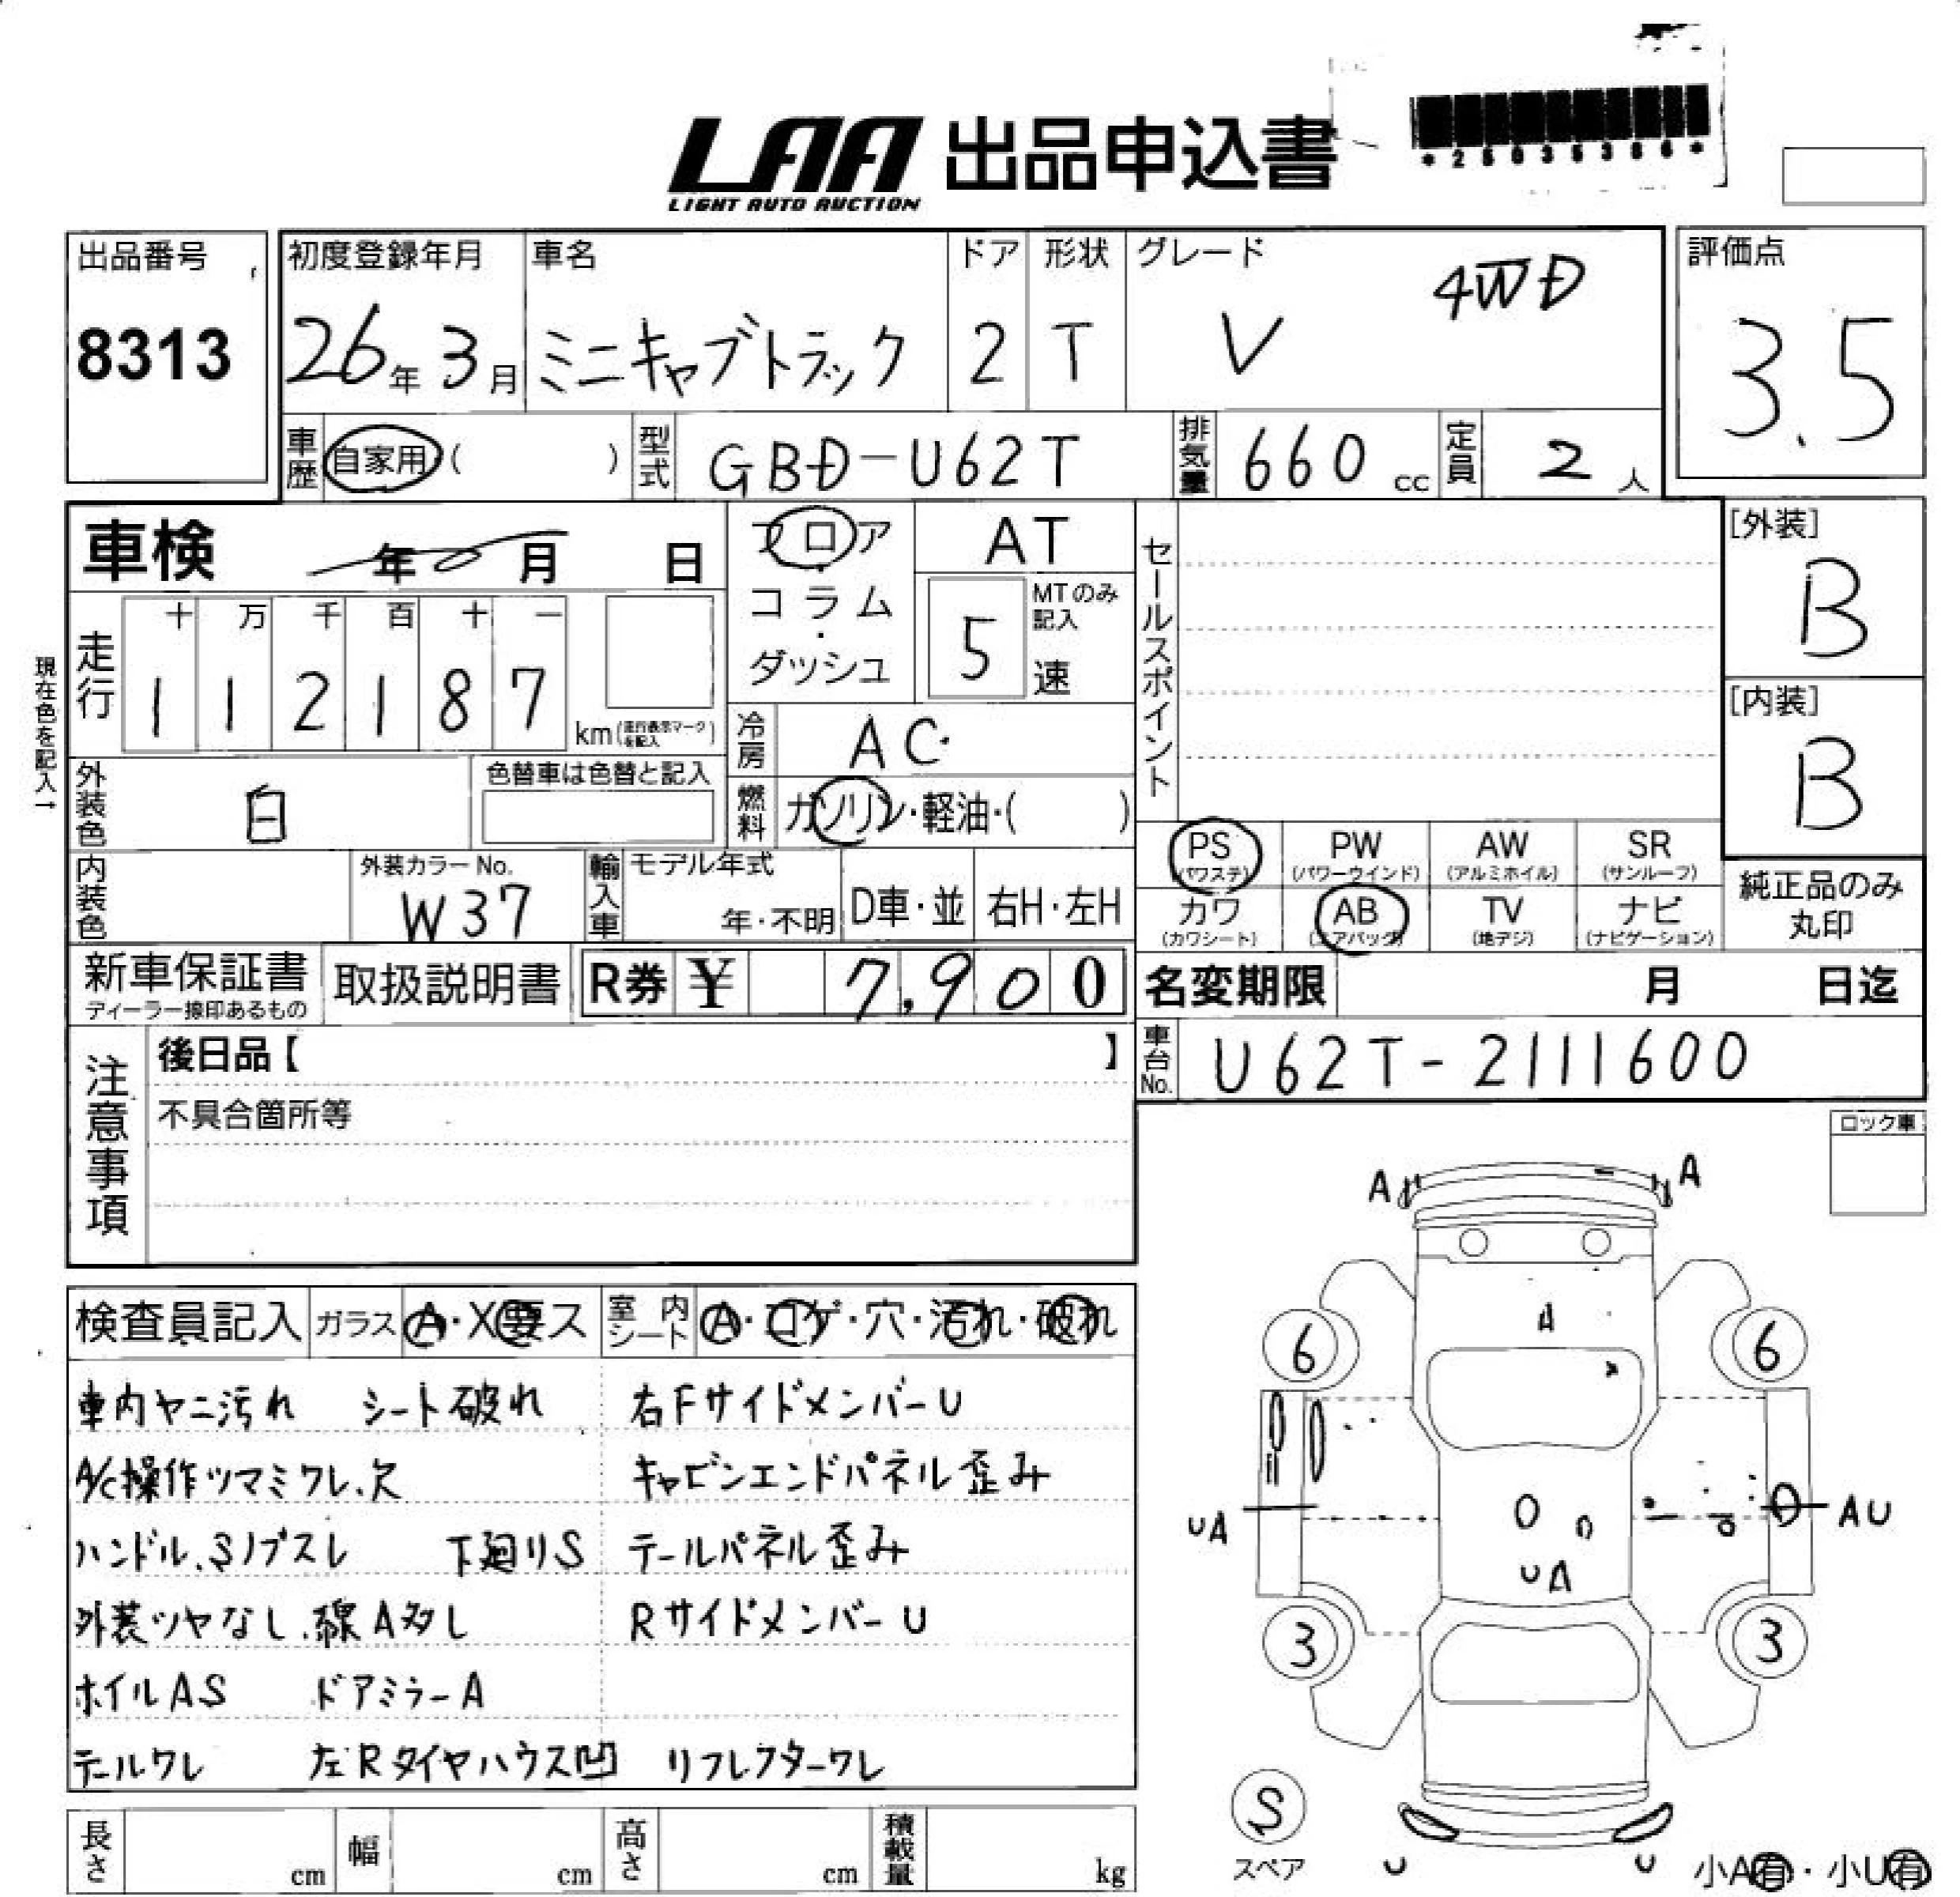 LAA 出品申込書
LIGHT AUTO AUCTION
出品番号 初度登録年月 車名 ドア 形状 グレード 評価点
8313 26年 3月 ミニキャブトラック 2 T V 4WD 3.5
車歴 自家用( ) 型式 GBD-U62T 排気量 660 cc 定員 2 人
車検 年 月 日 フロア AT セールスポイント [外装]
コラム・ B
ダッシュ 5 MTのみ記入 速
現在色を記入→
走行 十 万 千 百 十 一
1 1 2 1 8 7 km(走行表示マークを記入) [内装]
冷房 AC B
外装色 白 色替車は色替と記入 燃料 ガソリン・軽油・( )
PS PW AW SR
(パワステ) (パワーウインド) (アルミホイル) (サンルーフ)
内装色 外装カラーNo. 輸入車 モデル年式 D車・並 右H・左H カワ AB TV ナビ 純正品のみ
W37 年・不明 (カワシート) (エアバック) (地デジ) (ナビゲーション) 丸印
新車保証書 取扱説明書 R券 ¥ 7,900 名変期限 月 日迄
ディーラー捺印あるもの
注意事項 後日品【 】 車台No. U62T-2111600
不具合箇所等
ロック車
検査員記入 ガラス A・X要ス 室内シート A・コゲ・穴・汚れ・破れ
車内ヤニ汚れ シート破れ 右FサイドメンバーU
A/C操作ツマミワレ、欠 キャビンエンドパネル歪み
ハンドル、S/ノブスレ 下廻りS テールパネル歪み
外装ツヤなし、線A多し RサイドメンバーU
ホイルAS ドアミラーA
テールワレ 左Rタイヤハウス凹 リフレクターワレ
長さ cm 幅 cm 高さ cm 積載量 kg
A A
A
6 6
UA AU
UA
3 3
S
スペア U U 小A有・小U有